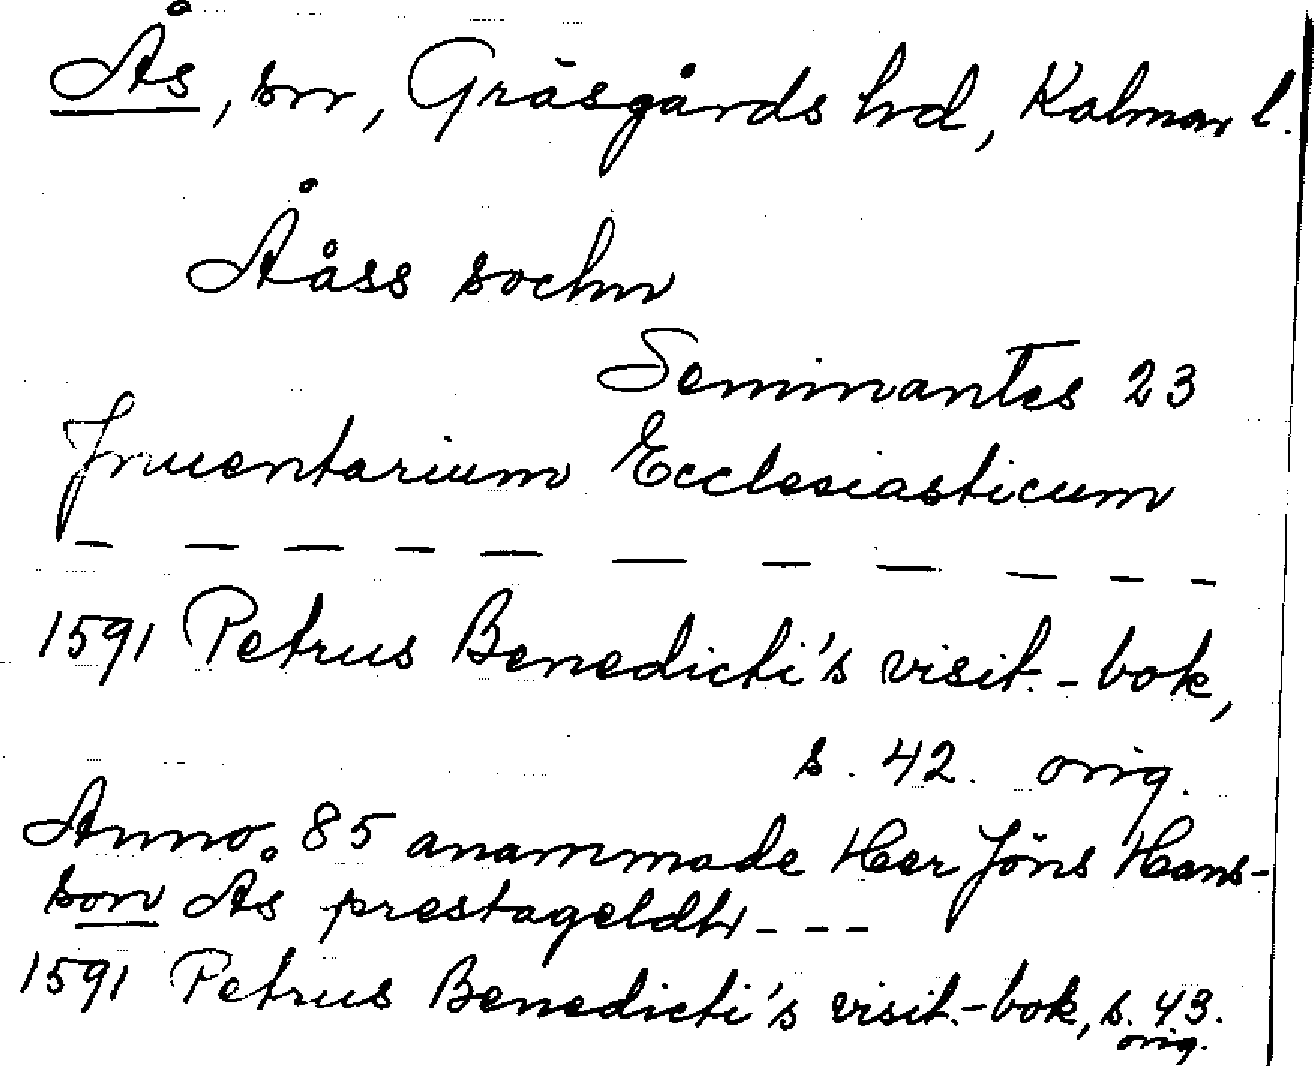 Ås, sn, Gräsgårds hd, Kalmar l.
Åååss sochn
Seminantes 23
Inuentarium Ecclesiasticum
— — — — — — — — — — —
1591 Petrus Benedicti's visit.-bok,
s. 42. orig.
Anno. 85 anammade Her Jöns Hans-
son Ås prestageldh - - -
1591 Petrus Benedicti's visit.-bok, s. 43.
orig.